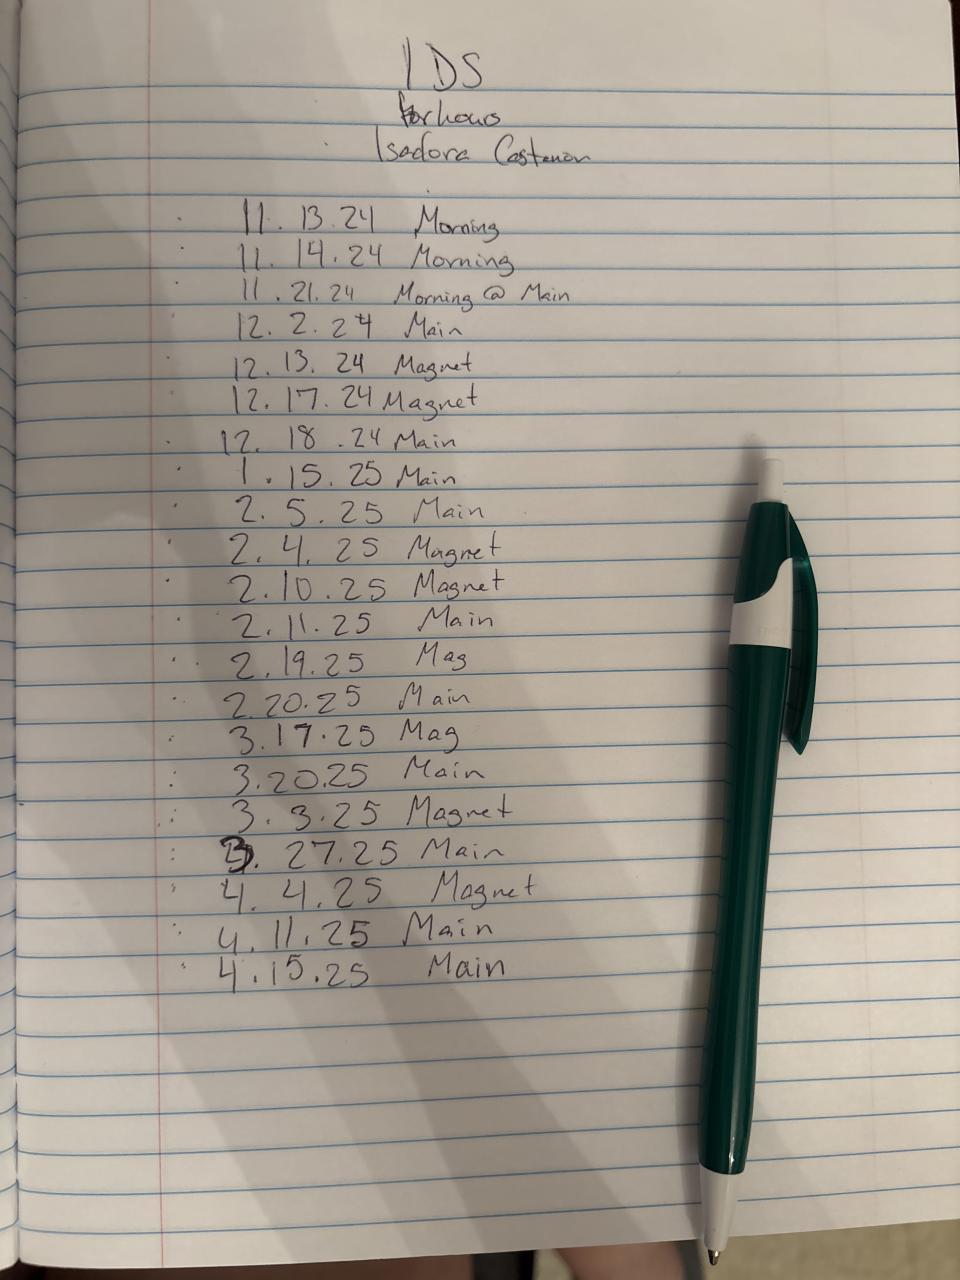 IDS
for hours
Isadora Castanon
11. 13. 24 Morning
11. 14. 24 Morning
11. 21. 24 Morning @ Main
12. 2. 24 Main
12. 13. 24 Magnet
12. 17. 24 Magnet
12. 18. 24 Main
1. 15. 25 Main
2. 5. 25 Main
2. 4. 25 Magnet
2. 10. 25 Magnet
2. 11. 25 Main
2. 19. 25 Mag
2. 20. 25 Main
3. 17. 25 Mag
3. 20. 25 Main
3. 3. 25 Magnet
3. 27. 25 Main
4. 4. 25 Magnet
4. 11. 25 Main
4. 15. 25 Main